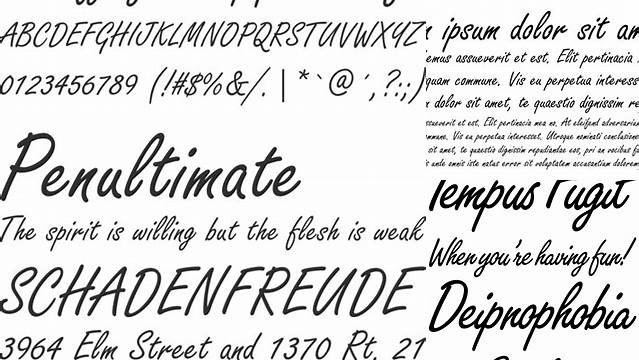 ABCDEFGHIJKLMNOPQRSTUVWXYZ
0123456789 (!#$%&/.|*`@´,?:;)
Penultimate
The spirit is willing but the flesh is weak
SCHADENFREUDE
3964 Elm Street and 1370 Rt. 21
ipsum dolor sit am
emus assueverit et est. Elit pertinacia
quam commune. Vis eu perpetua interess
dolor sit amet, te quaestio dignissim re
assueverit et est. Elit pertinacia no. At eleifend adversarium
commune. Vis eu perpetua interesset. Utroque nominati conclusione
sit amet, te quaestio dignissim repudiandae eos, pri an vocibus fa
omnis iste natus error sit voluptatem accusantium dolorem
Tempus Fugit
When you're having fun!
Deipnophobia